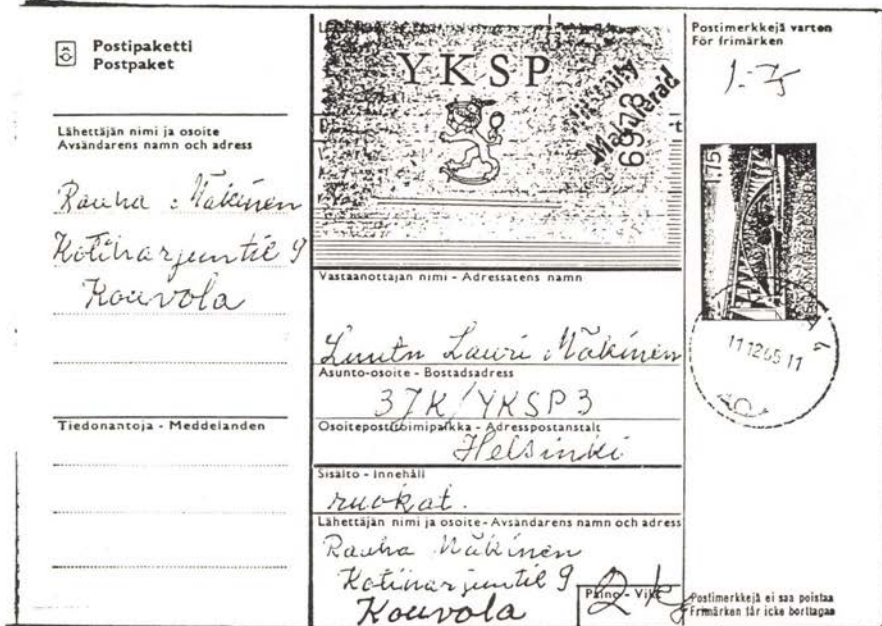 Postipaketti
Postpaket
Lähettäjän nimi ja osoite
Avsändarens namn och adress
Rauha Mäkinen
Kotiharjuntie 9
Kouvola
Tiedonantoja - Meddelanden
YKSP
6912
Vastaanottajan nimi - Adressatens namn
Luutn Lauri Mäkinen
Asunto-osoite - Bostadsadress
3JK/YKSP3
Osoitepostitoimipaikka - Adresspostanstalt
Helsinki
Sisältö - Innehåll
ruokat.
Lähettäjän nimi ja osoite - Avsändarens namn och adress
Rauha Mäkinen
Kotiharjuntie 9
Kouvola
Paino - Vikt
2 kg
Postimerkkejä varten
För frimärken
1.75
1.75
11.12.65.11
Postimerkkejä ei saa poistaa
Frimärken får icke borttagas